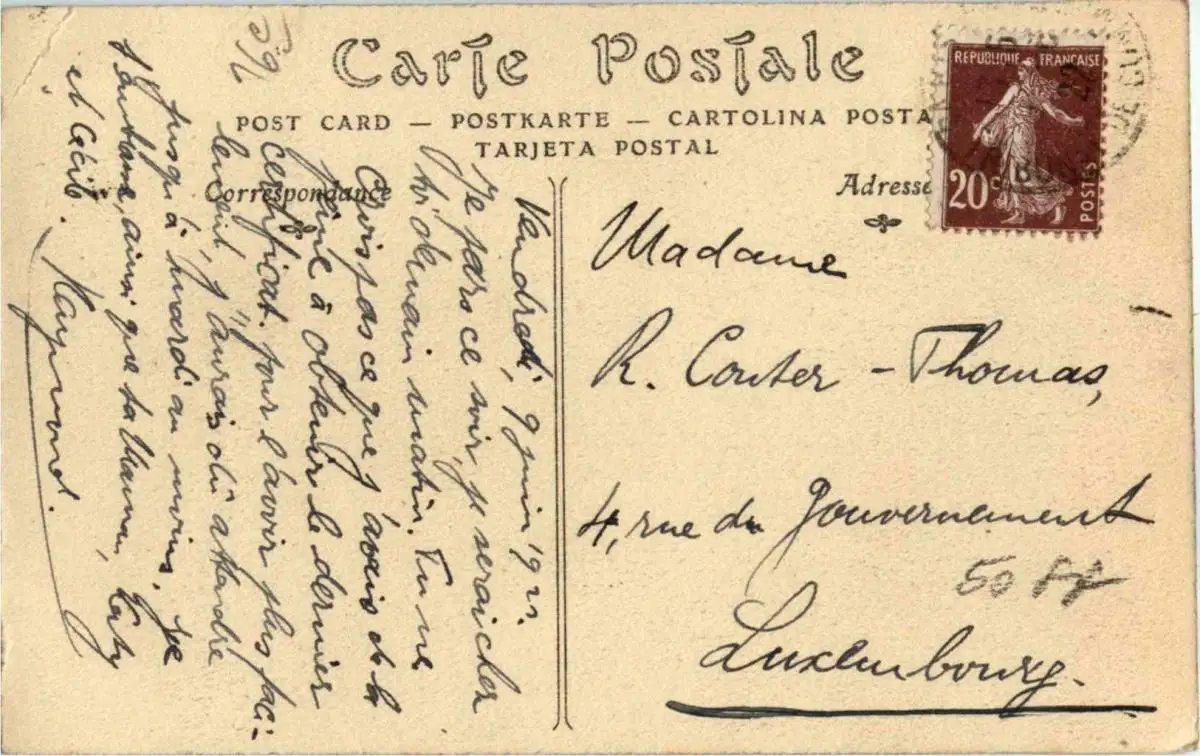 Carte Postale
POST CARD — POSTKARTE — CARTOLINA POSTA
TARJETA POSTAL
Correspondance
Adresse
REPUBLIQUE FRANÇAISE
20c
POSTES
Vendredi, 9 juin 192
Je pars ce soir, je serai chez
toi demain matin. Tu ne
crois pas ce que j'avais de la
peine à obtenir le dernier
certificat. pour l'avoir plus faci-
lement, j'aurais dû attendre
jusqu'à mardi au moins. Je
t'embrasse, ainsi que ta Maman, Caty
et Cécile.
Raymond.
59
Madame
R. Conter - Thomas,
4, rue du Gouvernement
50
Luxembourg.